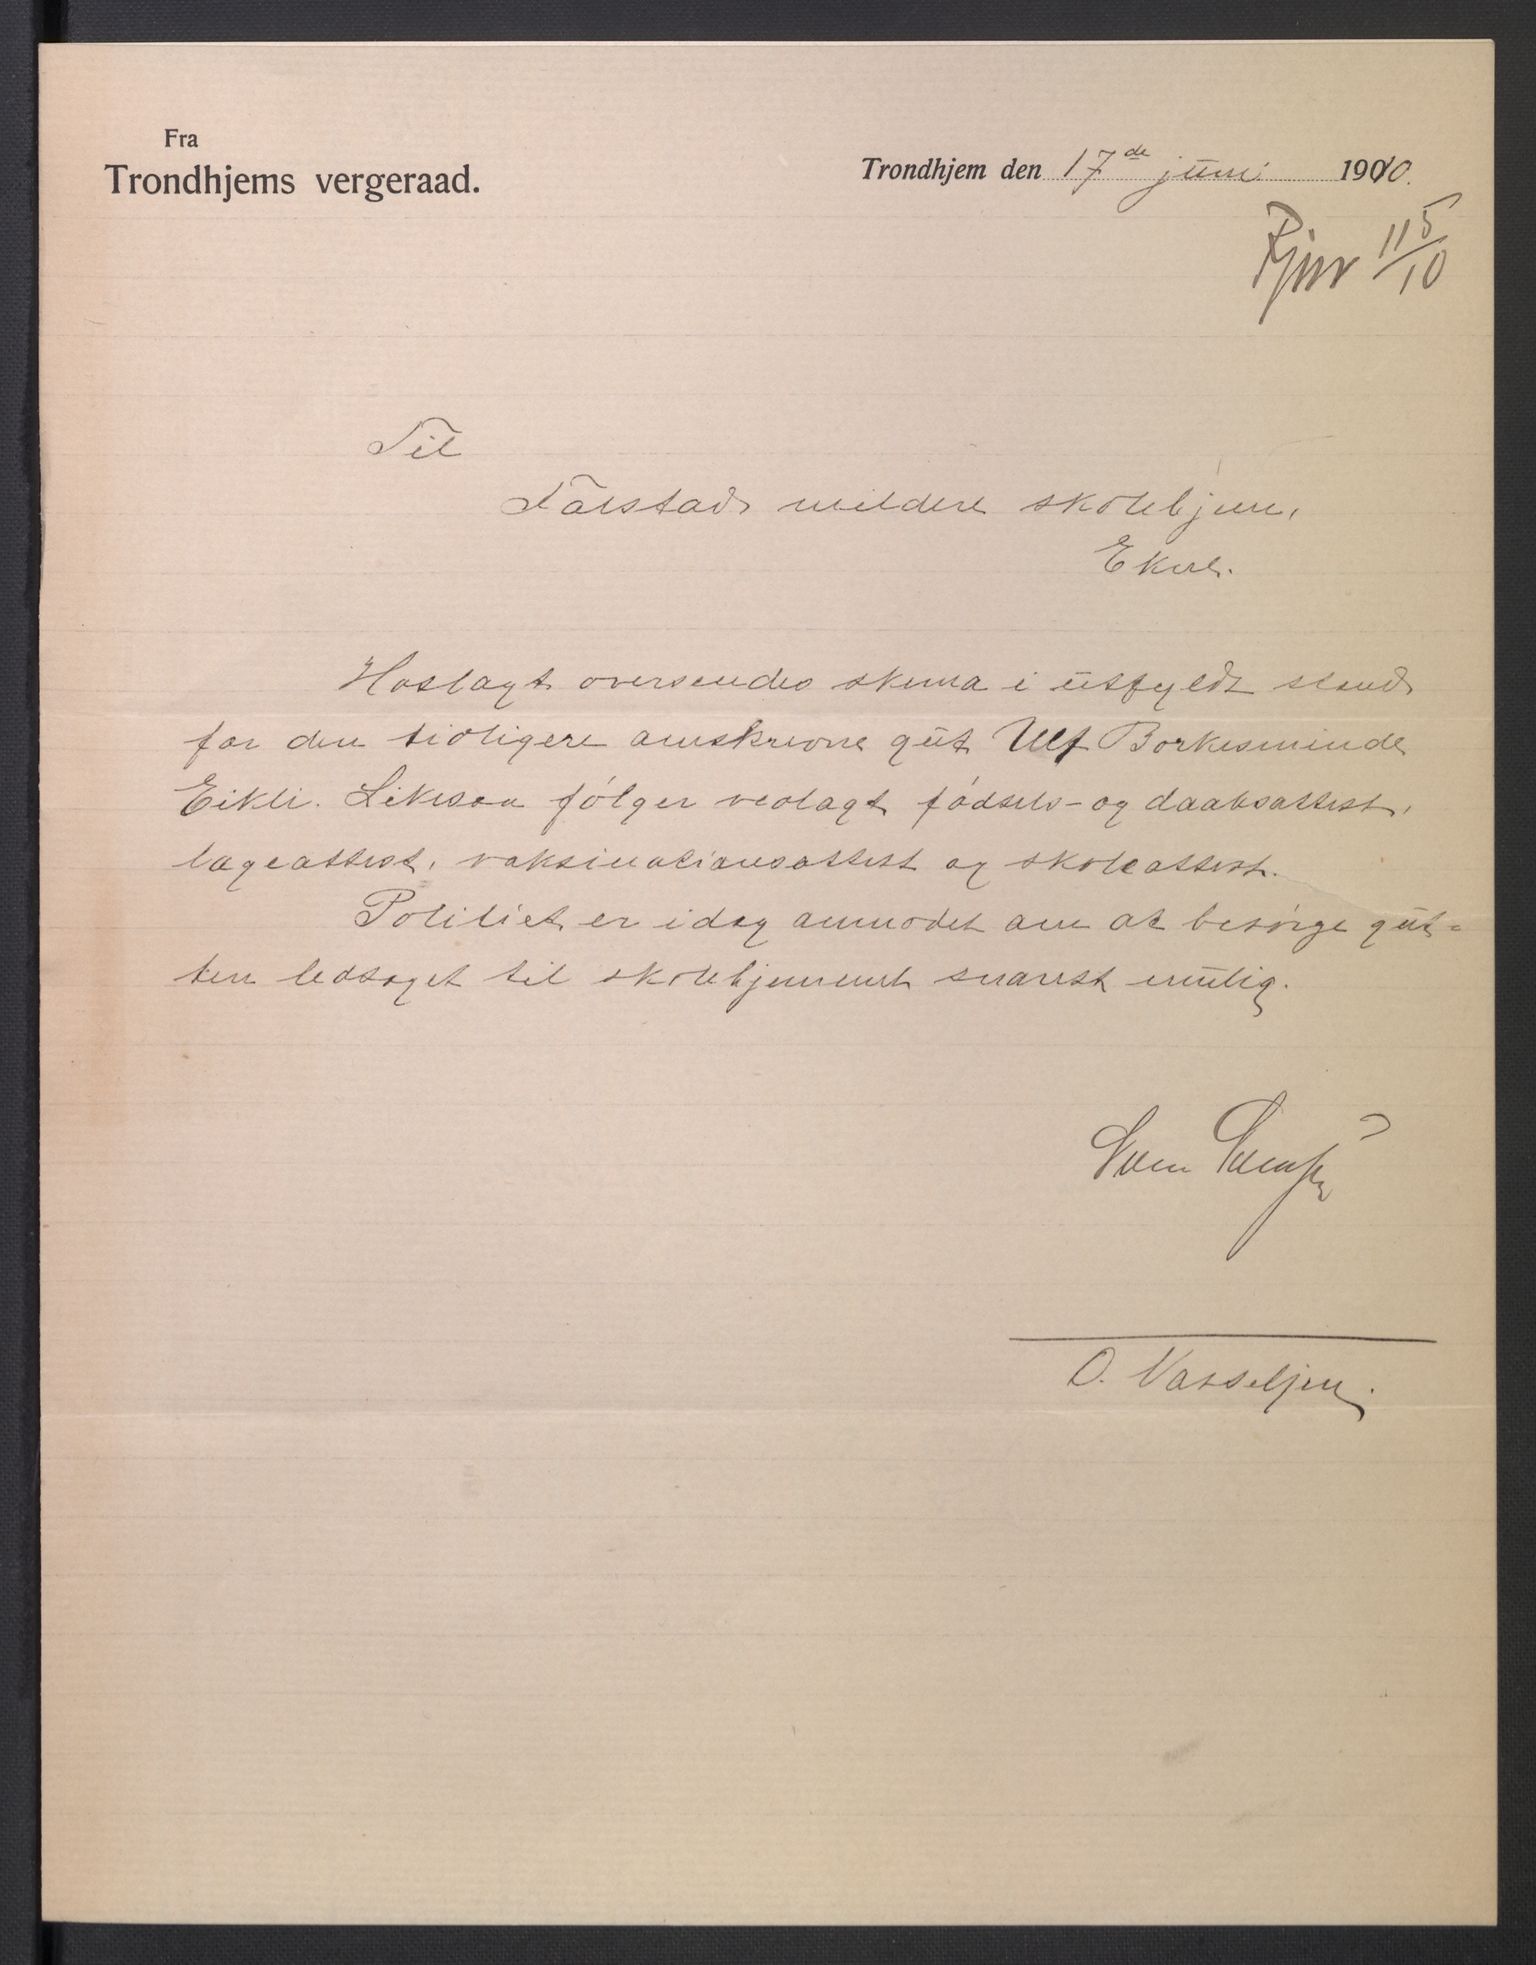 Fra
Trondhjems vergeraad.
Trondhjem den 17de juni 1910.
Pjnr 115/10
Til
Falstad mildere skolehjem,
Ekne.
Hoslagt oversendes skema i utfyldt stand
for den tidligere omskrevne gut Ulf Borkesminde
Eikli. Likesaa følger vedlagt fødsels- og daabsattest,
lægeattest, vaksinationsattest og skoleattest.
Politiet er idag anmodet om at besørge gut-
ten ledsaget til skolehjemmet snarest mulig.
O. Vasseljen.